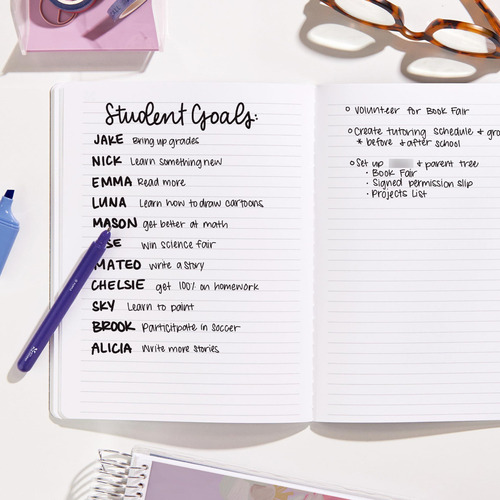 Student Goals:
JAKE Bring up grades
NICK Learn something new
EMMA Read more
LUNA Learn how to draw cartoons
MASON get better at math
win science fair
MATEO write a story
CHELSIE get 100% on homework
SKY Learn to paint
BROOK Participate in soccer
ALICIA Write more stories
Volunteer for Book Fair
Create tutoring schedule +
* before + after school
Set up + parent tree
• Book Fair
• Signed permission slip
• Projects List